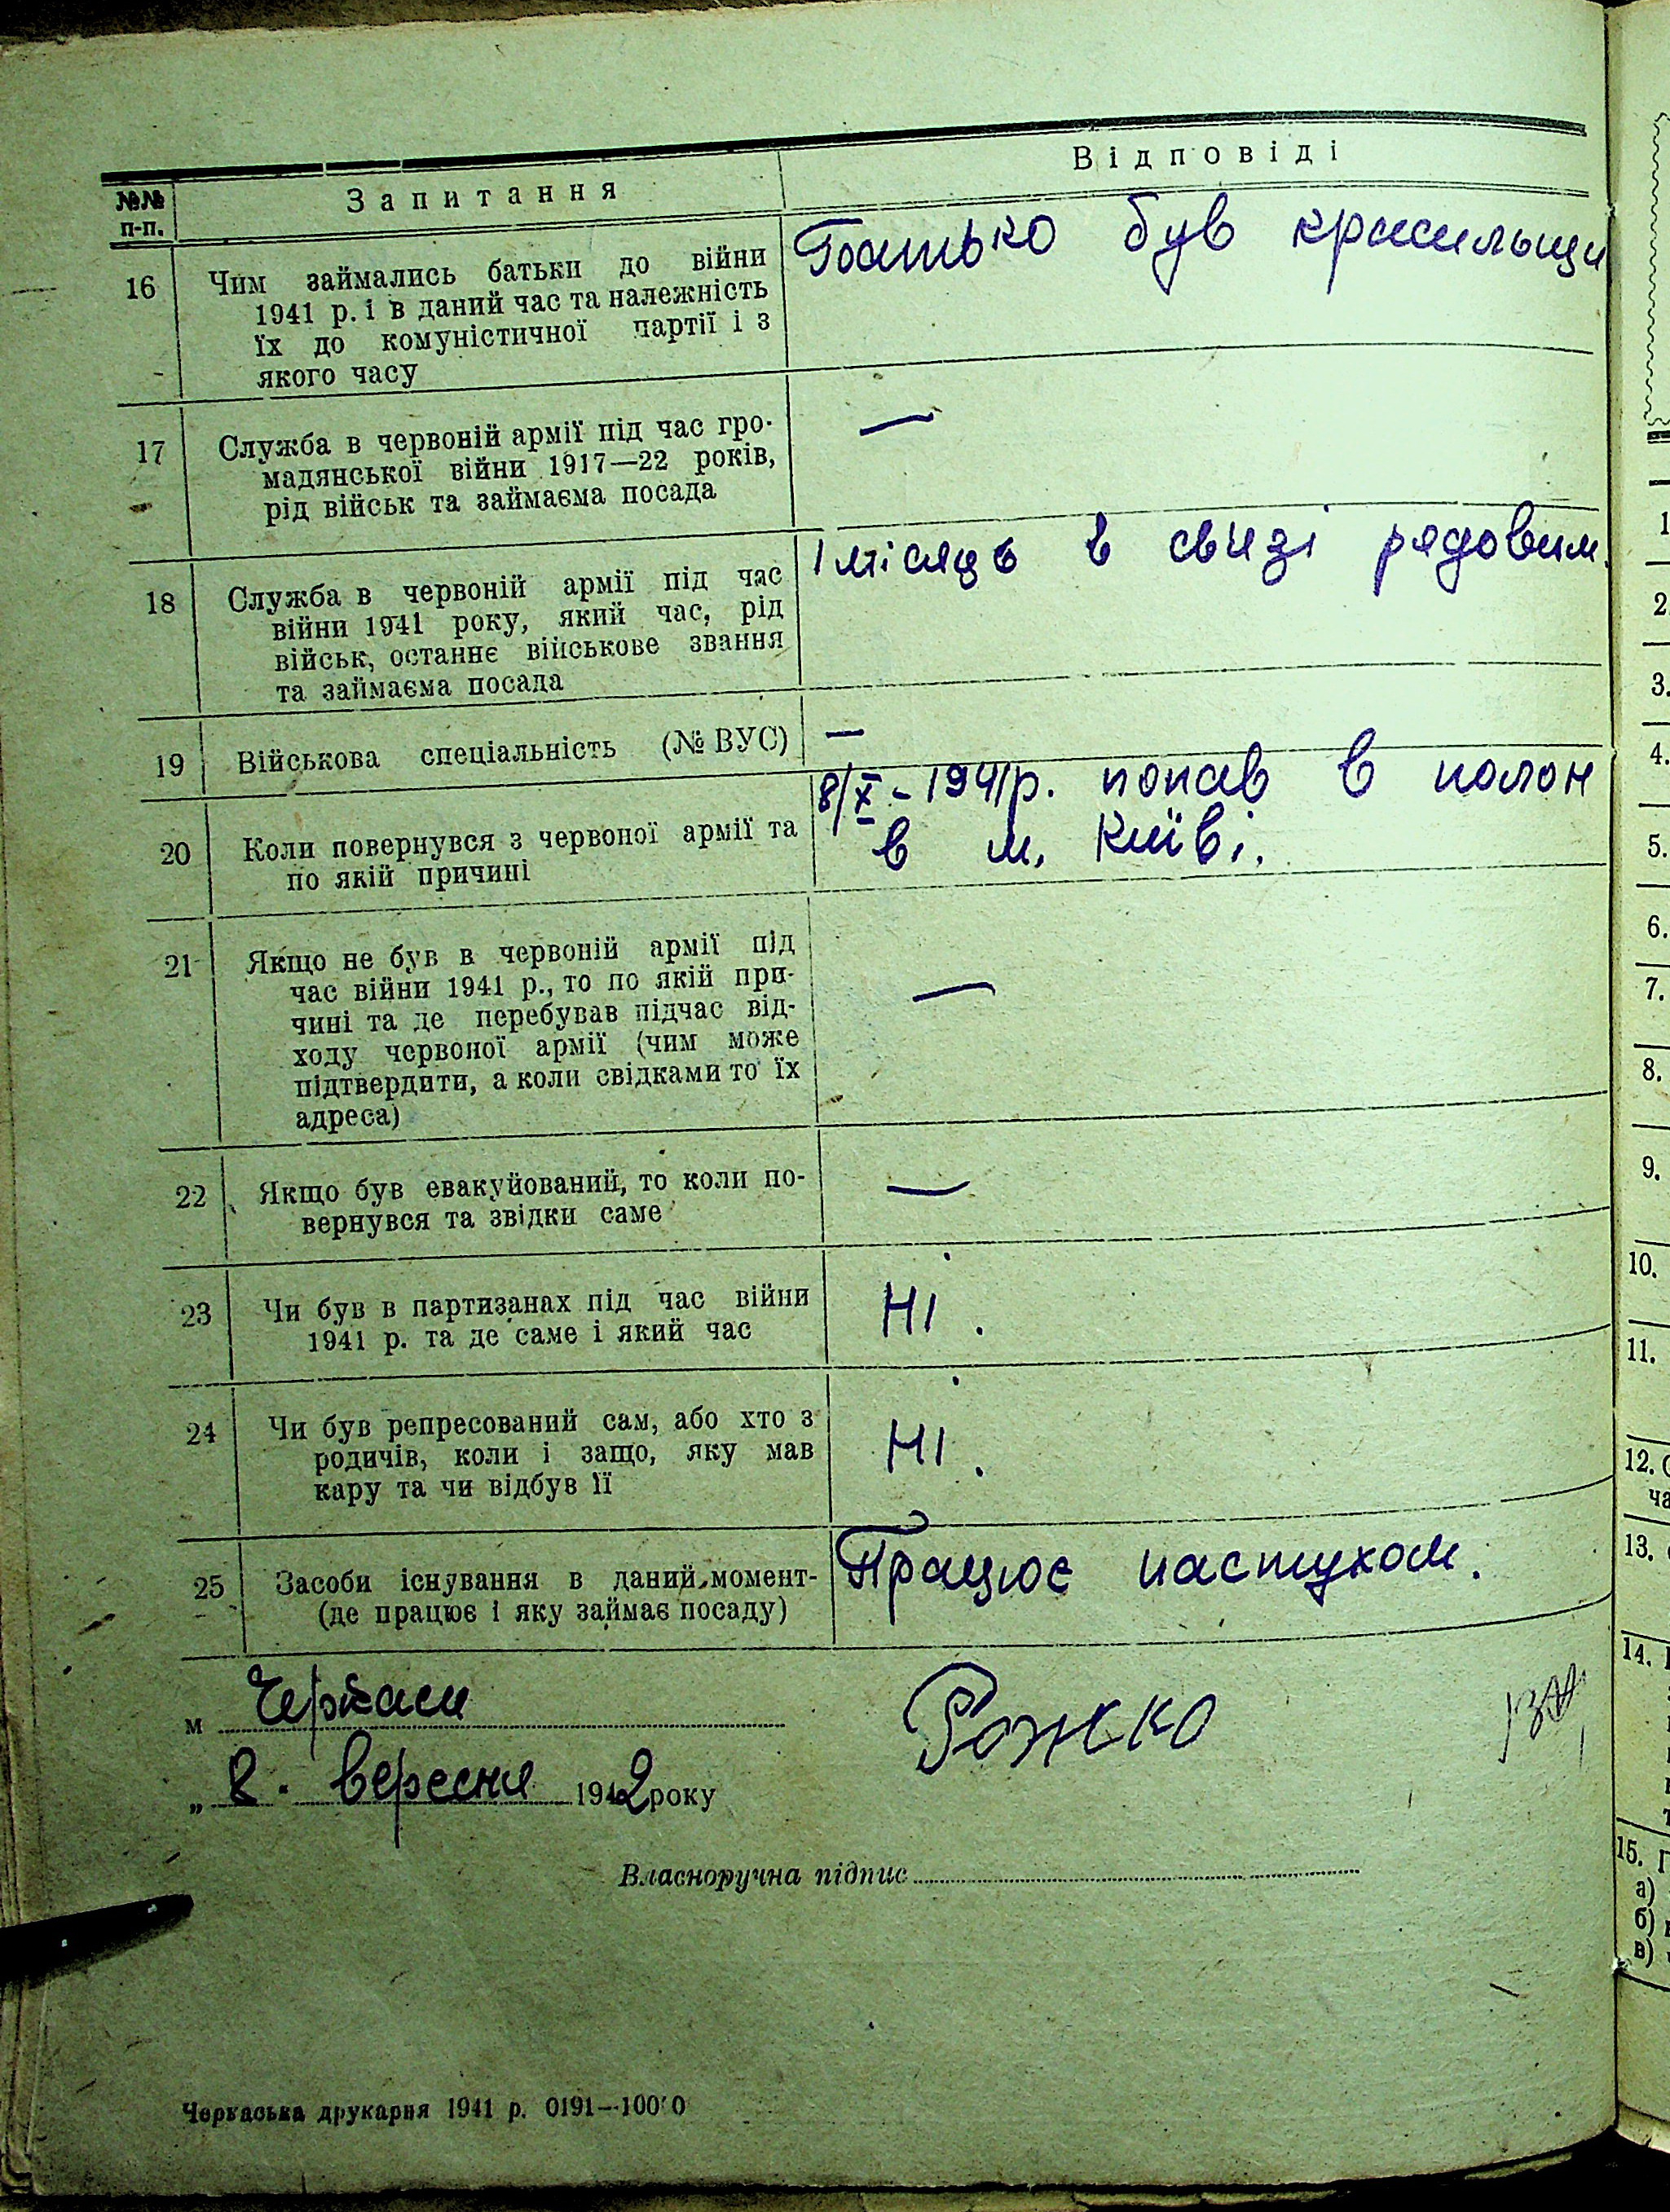 №№ п-п. Запитання Відповіді
16 Чим займались батьки до війни Батько був крисильщи
1941 р. і в даний час та належність
їх до комуністичної партії і з
якого часу
17 Служба в червоній армії під час гро- —
мадянської війни 1917—22 років,
рід військ та займаєма посада
18 Служба в червоній армії під час 1 місяць в свизі рядовим.
війни 1941 року, який час, рід
військ, останнє військове звання
та займаєма посада
19 Військова спеціальність (№ ВУС) —
20 Коли повернувся з червоної армії та 8/X - 1941р. попав в полон
по якій причині в м. Київі.
21 Якщо не був в червоній армії під —
час війни 1941 р., то по якій при-
чині та де перебував підчас від-
ходу червоної армії (чим може
підтвердити, а коли свідками то їх
адреса)
22 Якщо був евакуйований, то коли по- —
вернувся та звідки саме
23 Чи був в партизанах під час війни Ні.
1941 р. та де саме і який час
24 Чи був репресований сам, або хто з Ні.
родичів, коли і защо, яку мав
кару та чи відбув її
25 Засоби існування в даний момент- Працює пастухом.
(де працює і яку займає посаду)
м Черкаси Рожко
„ 8. вересня 1942 року
Власноручна підпис
Черкаська друкарня 1941 р. 0191—10000
1
2.
3.
4.
5.
6.
7.
8.
9.
10.
11.
12.
13.
14.
15.
а)
б)
в)